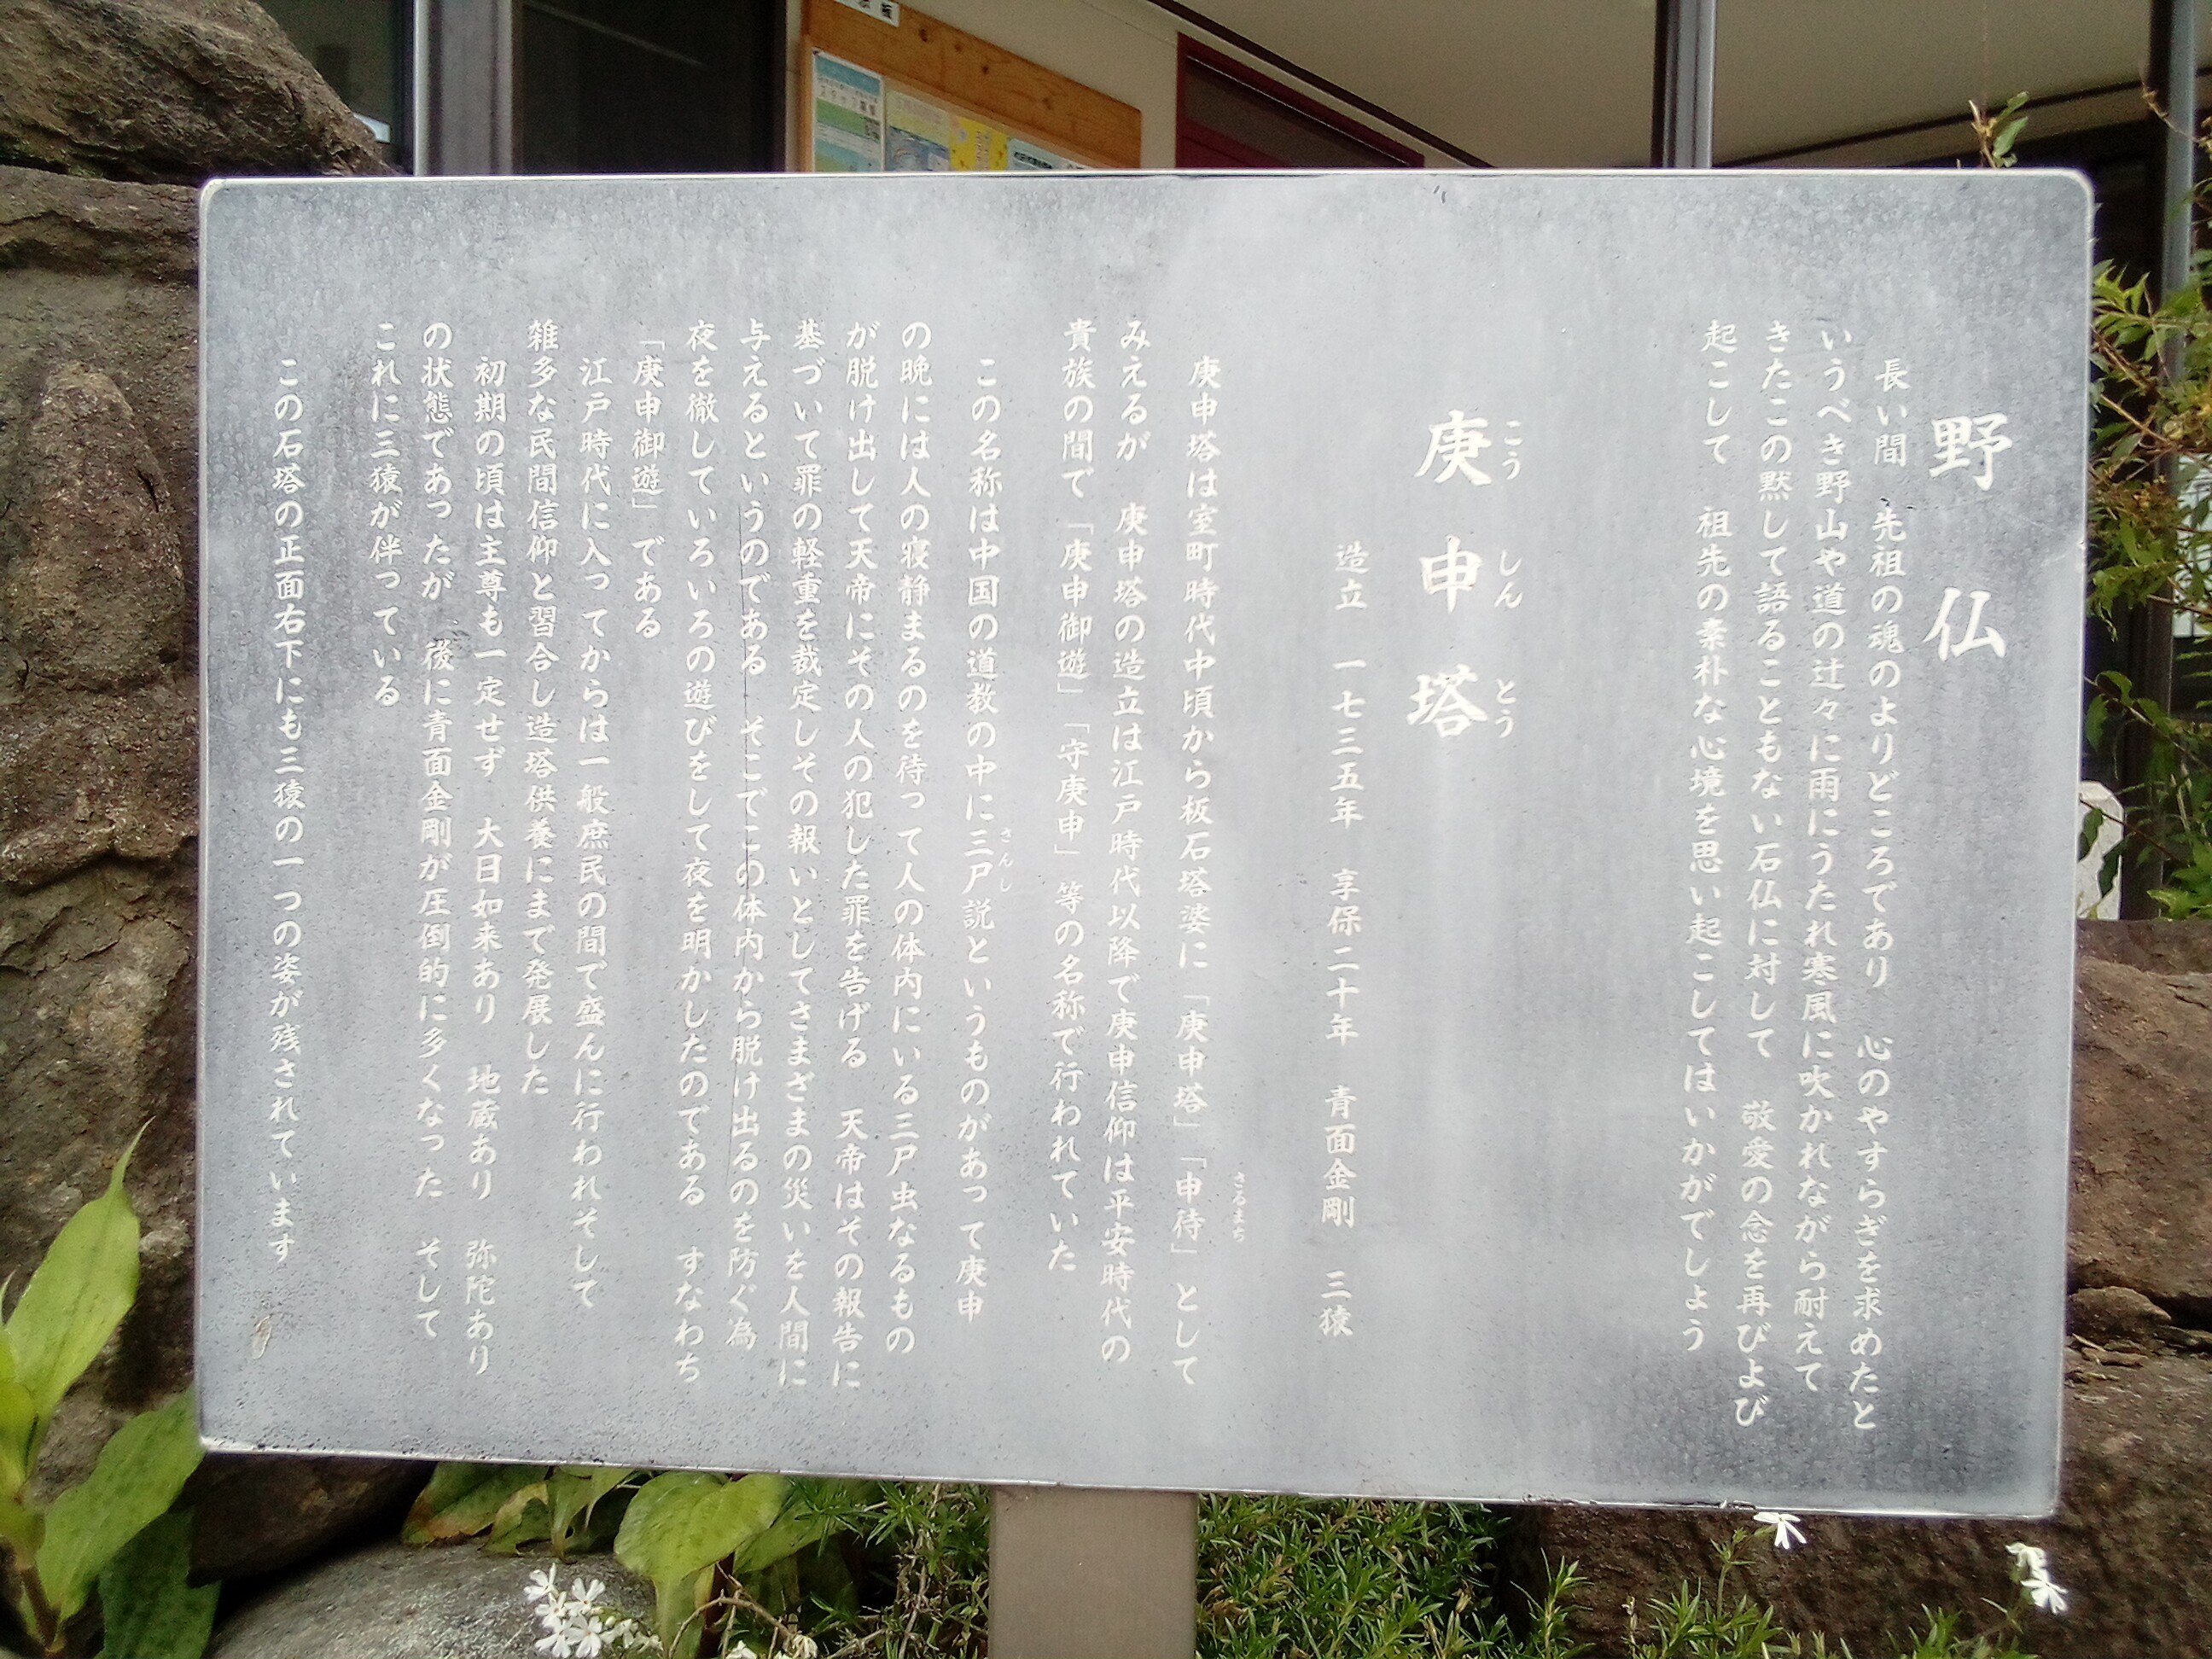 野仏
長い間　先祖の魂のよりどころであり　心のやすらぎを求めたと
いうべき野山や道の辻々に雨にうたれ寒風に吹かれながら耐えて
きたこの黙して語ることもない石仏に対して　敬愛の念を再びよび
起こして　祖先の素朴な心境を思い起こしてはいかがでしょう
庚申塔
こうしんとう
造立　一七三五年　享保二十年　青面金剛　三猿
庚申塔は室町時代中頃から板石塔婆に「庚申塔」「申待」として
さるまち
みえるが　庚申塔の造立は江戸時代以降で庚申信仰は平安時代の
貴族の間で「庚申御遊」「守庚申」等の名称で行われていた
この名称は中国の道教の中に三戸説というものがあって庚申
さんし
の晩には人の寝静まるのを待って人の体内にいる三戸虫なるもの
が脱け出して天帝にその人の犯した罪を告げる　天帝はその報告に
基づいて罪の軽重を裁定しその報いとしてさまざまの災いを人間に
与えるというのである　そこでこの体内から脱け出るのを防ぐ為
夜を徹していろいろの遊びをして夜を明かしたのである　すなわち
「庚申御遊」である
江戸時代に入ってからは一般庶民の間で盛んに行われそして
雑多な民間信仰と習合し造塔供養にまで発展した
初期の頃は主尊も一定せず　大日如来あり　地蔵あり　弥陀あり
の状態であったが　後に青面金剛が圧倒的に多くなった　そして
これに三猿が伴っている
この石塔の正面右下にも三猿の一つの姿が残されています
スタッフ募集